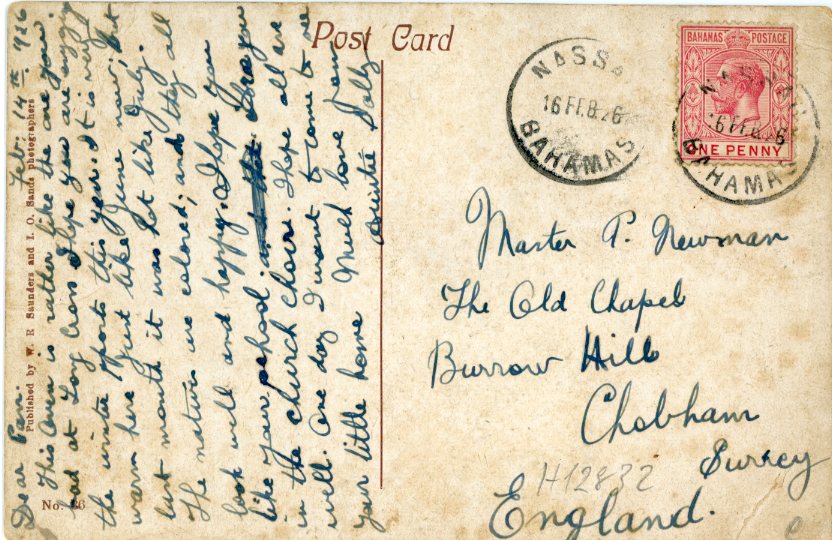 Post Card
Feb. 14th 926
Dear Pam.
This Oven is rather like the one you
had at Long Cross I hope you are enjoying
the winter sports this year. It is very
warm here just like June now; but
last month it was hot like July.
The natives are colored; and they all
look well and happy. I hope you
like your school
in the church choire. I hope all are
well. One day I want to come to see
your little home Much love from
Auntie Sally
Published by W. R Saunders and I. O. Sands photographers
No. 26
NASSA
16 FEB.26
BAHAMAS
BAHAMAS POSTAGE
ONE PENNY
NASSAU
16 FEB 26
BAHAMAS
Master P. Newman
The Old Chapel
Burrow Hill
Chobham
Surrey
England.
H12832